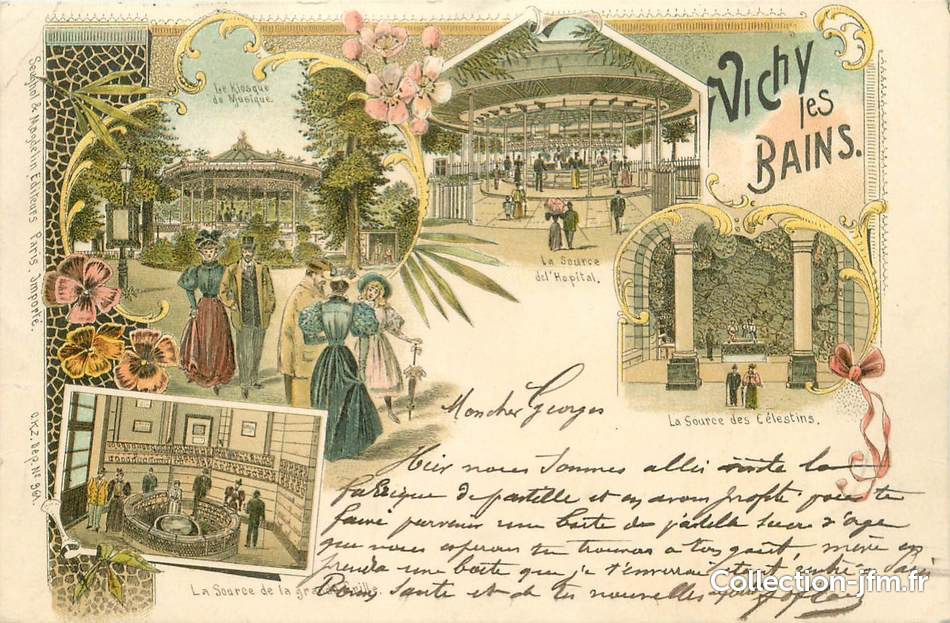 Vichy
les
BAINS.
Le Kiosque
de Musique.
La Source
de l'Hopital.
La Source des Célestins.
La Source de la grande Grille.
Seighol & Magdelin Editeurs Paris. Importé.
C.K.Z. Dep. No. 961.
Mon cher Georges
Hier nous sommes allés visité la
fabrique de pastille et en avons profité pour te
faire parvenir une boite de pastille sucre d'orge
que nous esperons tu trouveras a ton goût, même en
prendre une boite que je t'enverrai
Bonne Santé et de tes nouvelles
Collection-jfm.fr